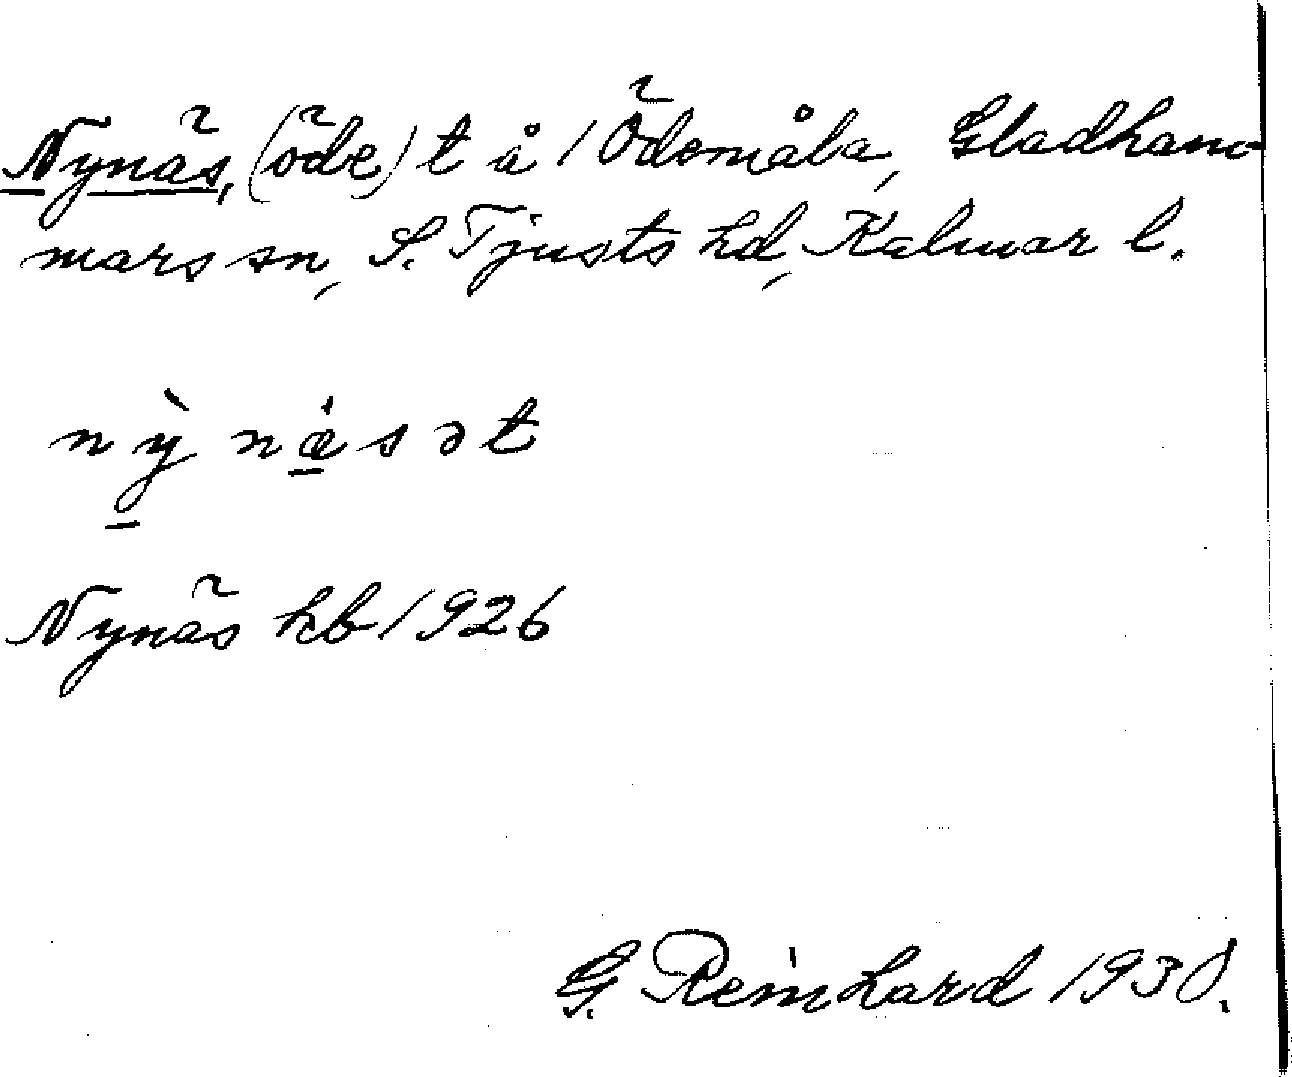 Nynäs, (öde) t å 1 Ödemåla, Gladham-
mars sn, S. Tjusts hd, Kalmar l.
nỳnæ̇sət
Nynäs kb 1926
G. Reinhard 1930.